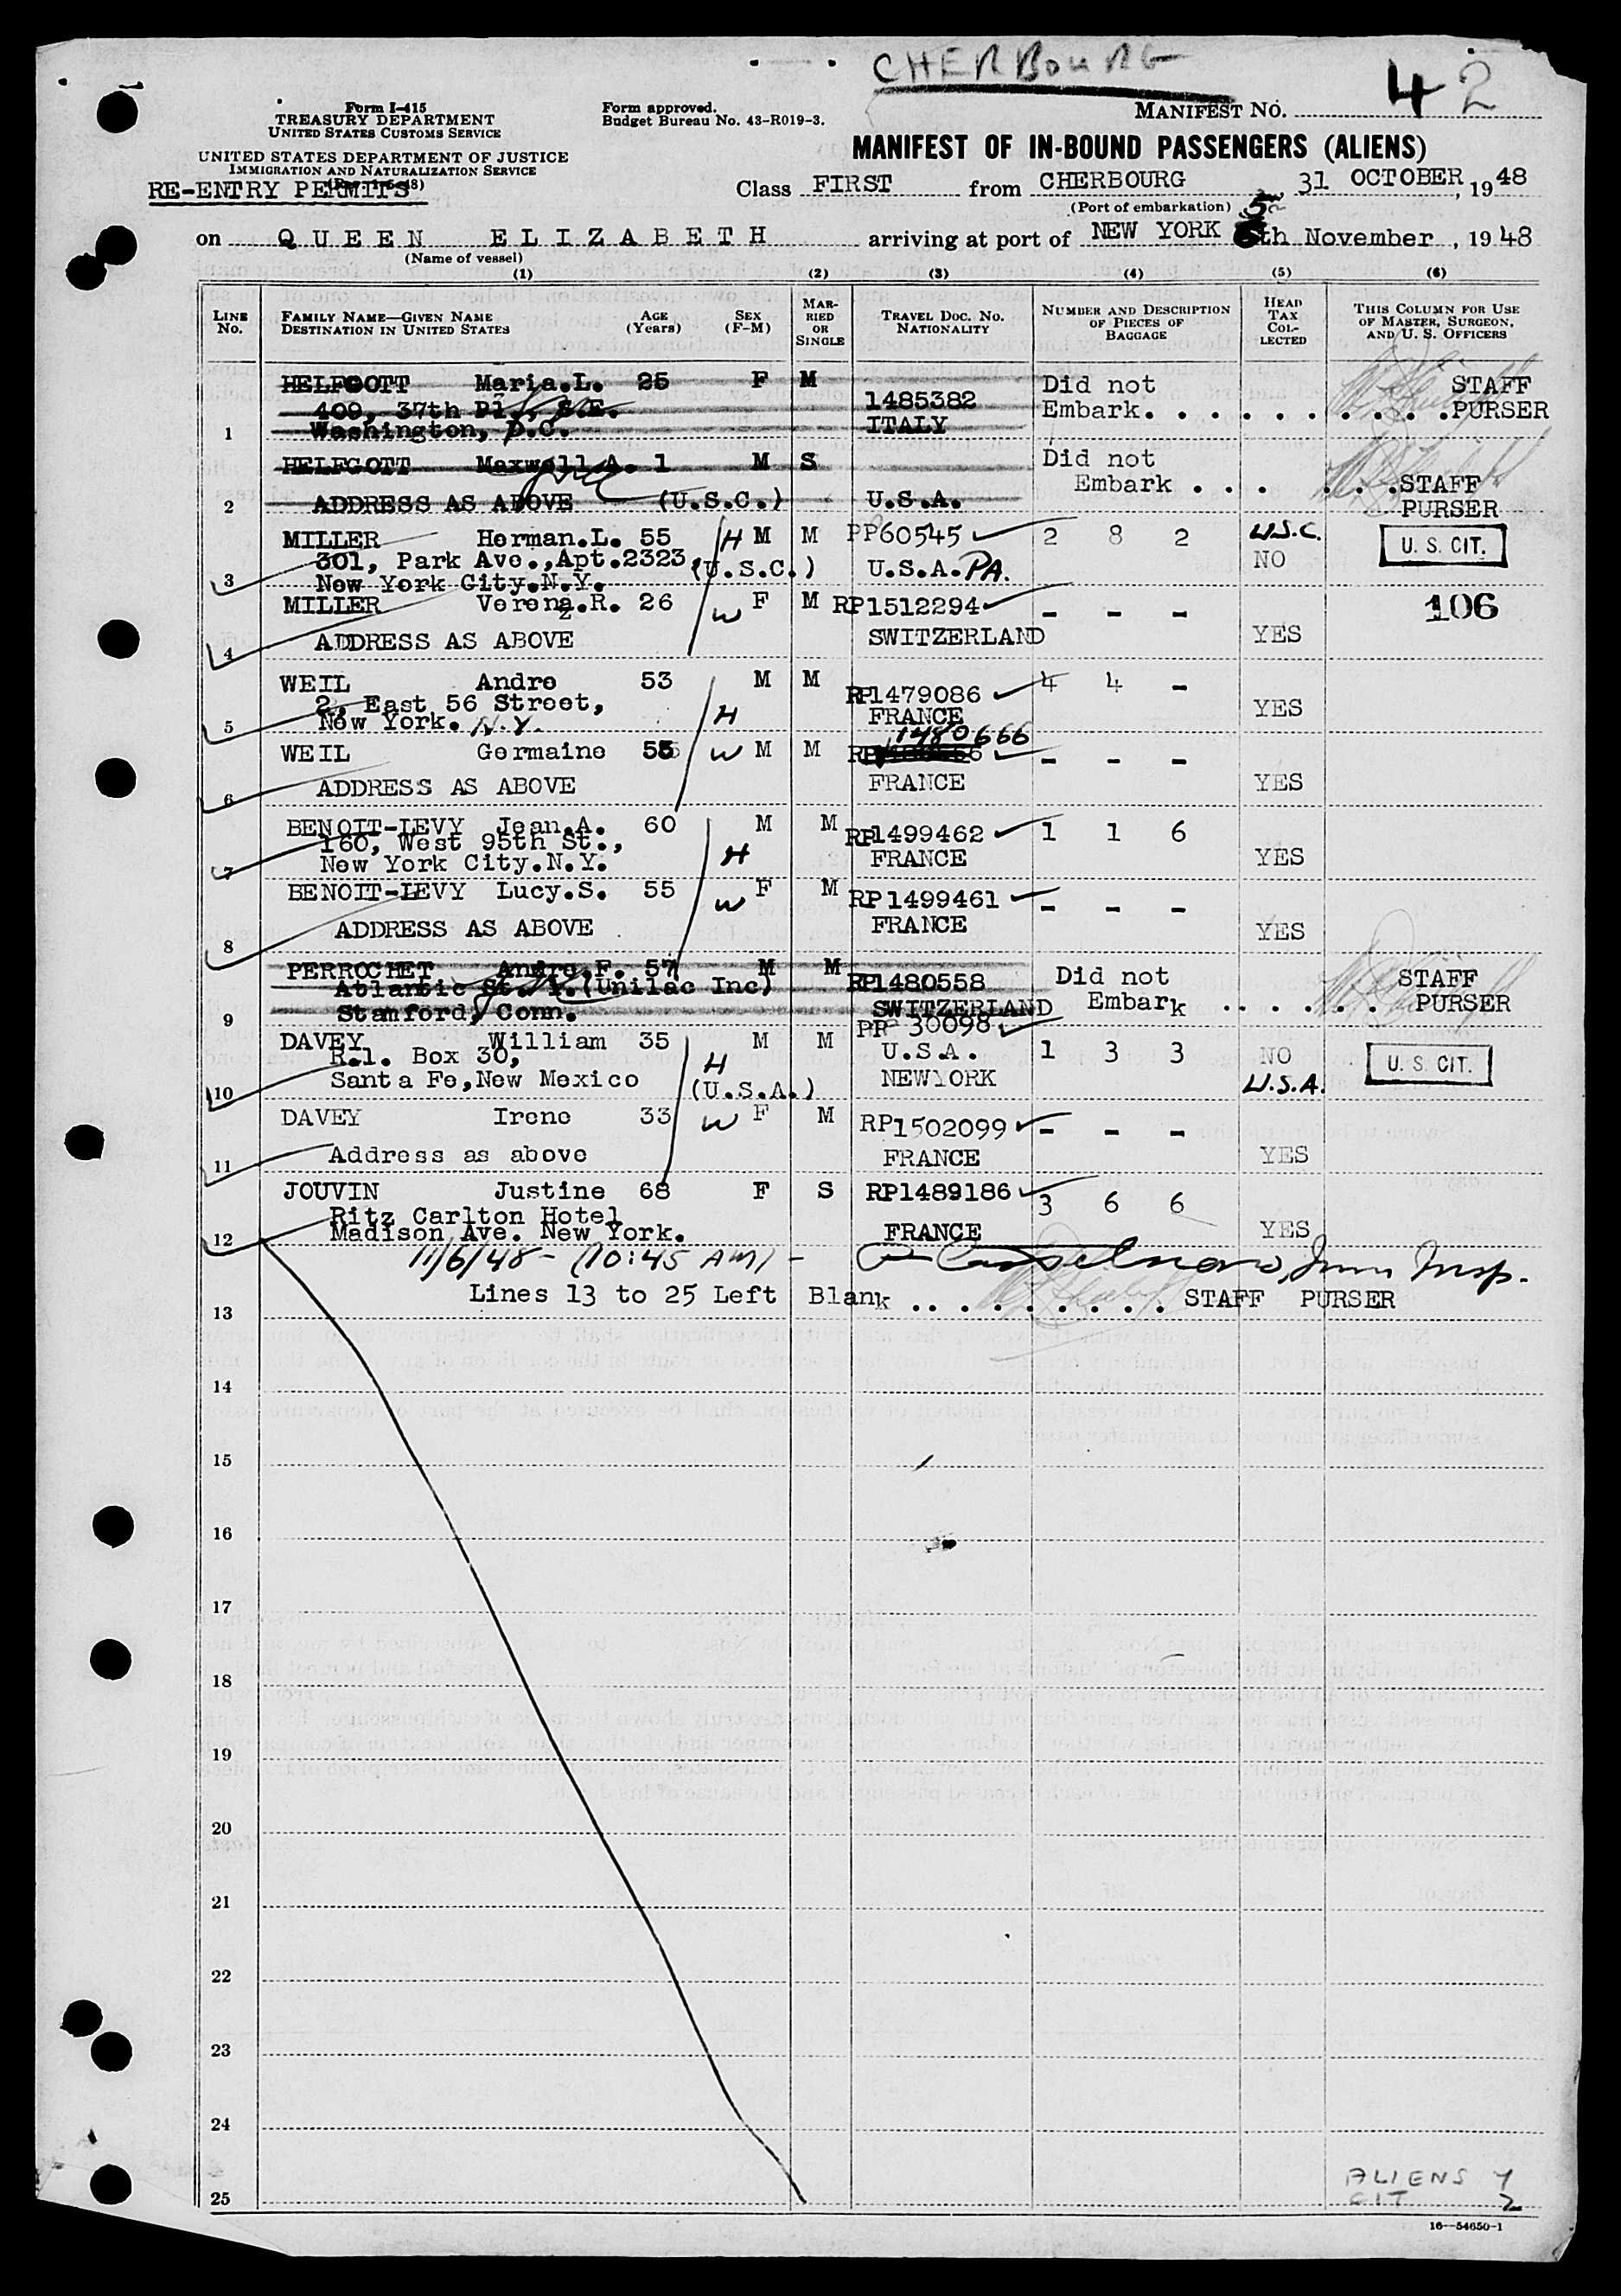 CHERBOURG
4 2
Form I-415
TREASURY DEPARTMENT
UNITED STATES CUSTOMS SERVICE
Form approved.
Budget Bureau No. 43-R019-3.
MANIFEST NO.
UNITED STATES DEPARTMENT OF JUSTICE
IMMIGRATION AND NATURALIZATION SERVICE
MANIFEST OF IN-BOUND PASSENGERS (ALIENS)
RE-ENTRY PERMITS
Class FIRST from CHERBOURG, 31 OCTOBER, 1948
(Port of embarkation)
on QUEEN ELIZABETH arriving at port of NEW YORK 5th November, 1948
(Name of vessel)
(1) (2) (3) (4) (5) (6)
LINE No. FAMILY NAME—GIVEN NAME DESTINATION IN UNITED STATES AGE (Years) SEX (F-M) MARRIED OR SINGLE TRAVEL DOC. NO. NATIONALITY NUMBER AND DESCRIPTION OF PIECES OF BAGGAGE HEAD TAX COLLECTED THIS COLUMN FOR USE OF MASTER, SURGEON, AND U. S. OFFICERS
HELFGOTT Maria.L. 25 F M Did not STAFF
409, 37th Pl., S.E. 1485382 Embark. . . . . . . . . . PURSER
1 Washington, D.C. ITALY
HELFGOTT Maxwell A. 1 M S Did not
Embark . . . . . . STAFF
2 ADDRESS AS ABOVE (U.S.C.) U.S.A. PURSER
MILLER Herman.L. 55 H M M PP60545 2 8 2 U.S.C. U. S. CIT.
301, Park Ave.,Apt.2323, (U.S.C.) U.S.A. PA. NO
3 New York City.N.Y.
MILLER Verena.R. 26 W F M RP1512294 - - - 106
z
4 ADDRESS AS ABOVE SWITZERLAND YES
WEIL Andre 53 M M RP1479086 4 4 -
2, East 56 Street,
5 New York. N.Y. H FRANCE YES
1480666
WEIL Germaine 55 W M M RP - - -
6 ADDRESS AS ABOVE FRANCE YES
BENOIT-LEVY Jean.A. 60 M M RP1499462 1 1 6
160, West 95th St.,
7 New York City.N.Y. H FRANCE YES
BENOIT-LEVY Lucy.S. 55 W F M RP1499461 - - -
8 ADDRESS AS ABOVE FRANCE YES
PERROCHET Andre.F. 57 M M Did not STAFF
Atlantic St. (Unilac Inc) RP1480558 Embark . . . . . . PURSER
9 Stamford, Conn. SWITZERLAND
PP 30098
DAVEY William 35 M M U.S.A. 1 3 3 NO U. S. CIT.
R.1. Box 30, H
10 Santa Fe,New Mexico (U.S.A.) NEWYORK U.S.A.
DAVEY Irene 33 W F M RP1502099 - - -
11 Address as above FRANCE YES
JOUVIN Justine 68 F S RP1489186 3 6 6
Ritz Carlton Hotel
12 Madison Ave. New York. FRANCE YES
11/6/48 - (10:45 AM) - Imm Insp.
Lines 13 to 25 Left Blank .. . . . . . . . . STAFF PURSER
13
14
15
16
17
18
19
20
21
22
23
24
25
ALIENS 7
CIT 2
16—54650-1